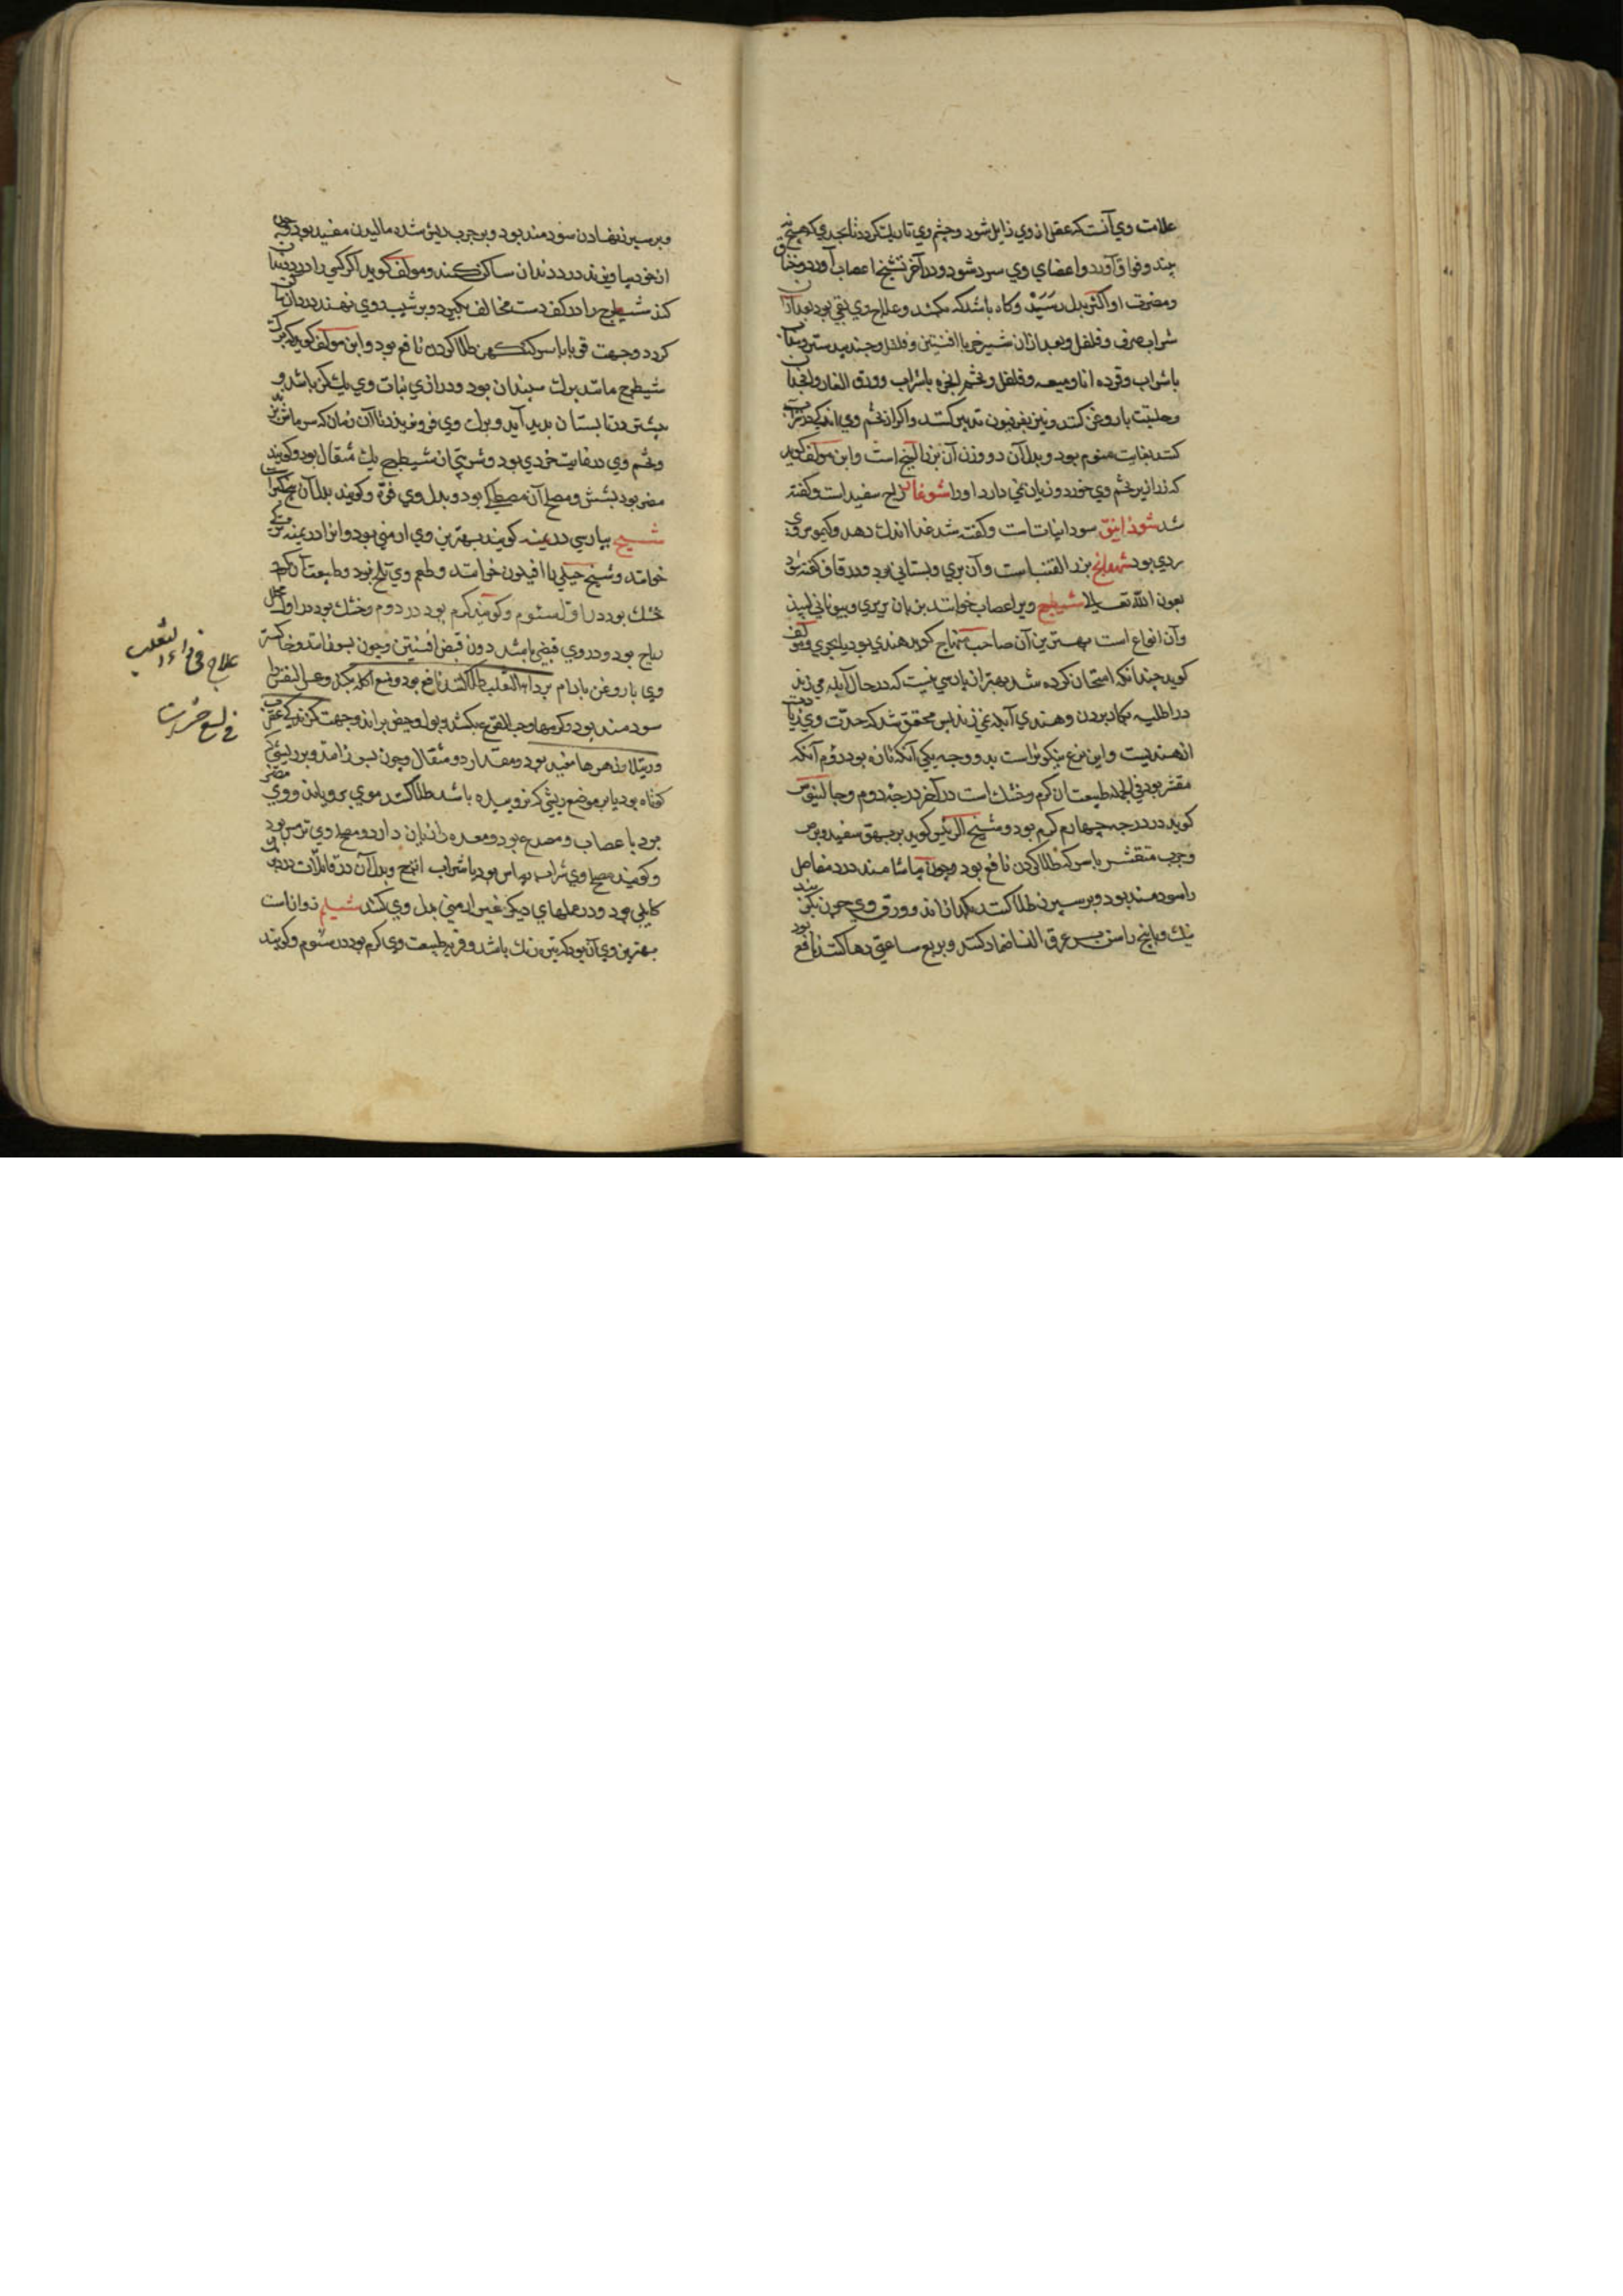 علامت وي آنست که عقل از وي زایل شود و چشم وي تاریك کردد تا بحدي که هیچ نه
بیند و فواق آورد و اعضاي وي سرد شود و در آخر تشنج اعصاب آورد و خناق
ومضرت او اکثر بدل رسد و کاه باشد که بکشد و علاج وي بقي بود بعد از آن
شراب صرف و فلفل و بعد ازان شیر خر با افسنتین و فلفل و جندبیدستر و سداب
باشراب و قرده مانا و میعه و فلفل و تخم انجره باشراب و ورق الغار و انجدان
و حلتیت باروغن کنند و نیز بفرفیون تدبیر کنند و اکر از تخم وي اندکي در شراب
کنند بغایت منوم بود و بدل آن دو وزن آن بزر البنج است و ابن مولف کوید
که زرازیر تخم وي خورد و زیان نمي دارد او را شوغار زاج سفید است و کفته
شد شوذانیق سودانیات است و کفته شد غذا اندك دهد و کیموس وي
ردي بود شهدانج بزر القنب است و آن بري و بستاني بود و در قاف کفته شود
بعون الله تعالی شیطرج ویرا عصاب خوانند بزبان بربري و بیوناني لیپذ
و آن انواع است بهترین آن صاحب منهاج کوید هندي بود یا بحري و مولف
کوید چندانکه امتحان کرده شد بهتر از پارسي نیست که در حال آبله مي زند
در اطلیه بکار بردن و هندي آبله نمي زند پس محقق شد که حدت وي زیادت
از هندیست و این نوع نیکوتر است بدو وجه یکي آنکه تازه بود دوم آنکه
مقشر بود في الجمله طبیعت آن کرم و خشك است در آخر درجه دوم و جالینوس
کوید در درجه چهارم کرم بود و شیخ الرئیس کوید بر بهق سفید و برص
و جرب متقشر باسرکه طلا کردن نافع بود و چون بیاشامند درد مفاصل
را سودمند بود و بر سپرز طلا کنند بکدازاند و ورق وي چون بکوبند
نیك و با بیخ راسن بر عرق النسا ضماد کنند و بربع ساعتي رها کنند نافع بود
و بر سپرز نهادن سودمند بود و بر جرب ریش شده مالیدن مفید بود و چون
از خود بیاویزند درد دندان ساکن کند و مولف کوید اکر کسي را درد دندان
کند شیطرج را در کف دست مخالف بکیرد و بر شیب روي نهند درد ساکن
کردد و جهت قوبا باسرکه کهن طلا کردن نافع بود و ابن مولف کوید که برك
شیطرج مانند برك سپندان بود و درازي نبات وي یك کز باشد و
بیشتر در تابستان بدید آید و برك وي فرو نریزد تا آن زمان که سرماش بزند
و تخم وي در غایت خردي بود و شربتي از شیطرج یك مثقال بود و کویند
مضر بود بشش و مصلح آن مصطکي بود و بدل وي فوه و کویند بدل آن بیخ کبر است
شیح بپارسي درمنه کویند بهترین وي ارمني بود و انرا درمنه ترکي
خوانند و شیح جبلي را افیلون خوانند و طعم وي تلخ بود و طبیعت آن کرم و
خشك بود در اول سیوم و کویند کرم بود در دوم و خشك بود در اول محلل
ریاح بود و در وي قبضي باشد دون قبض افسنتین و چون بسوزانند و خاکستر
وي باروغن بادام بر داء الثعلب طلا کنند نافع بود و منع اکله بکند و عسر النفس را
سودمند بود و کرمها و حب القرع بکشد و بول و حیض براند و جهت کزندکي عقرب
و رتیلا و زهرها مفید بود مقدار دو مثقال و چون بسوزانند و بر ریشي که
کوتاه بود یا بر موضع ریشي که نروییده باشد طلا کنند موي برویاند و وي مضر
بود باعصاب و مصدع بود و معده را زیان دارد و مصلح وي ترمس بود
کابلي بود و در عملهاي دیکر غیر ارمني بدل وي کنند شیلم زوانست
بهترین وي آن بود که تیره رنك باشد و فربه طبیعت وي کرم بود در سیوم و کویند
علاج في داء الثعلب
في لسع حشرات